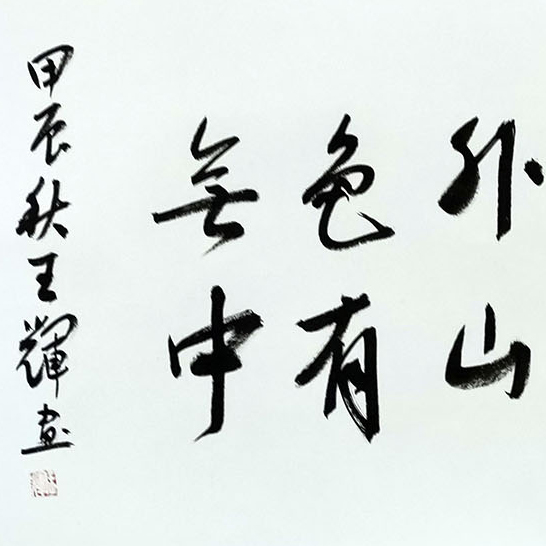 外山
色有
無中
甲辰秋王輝畫